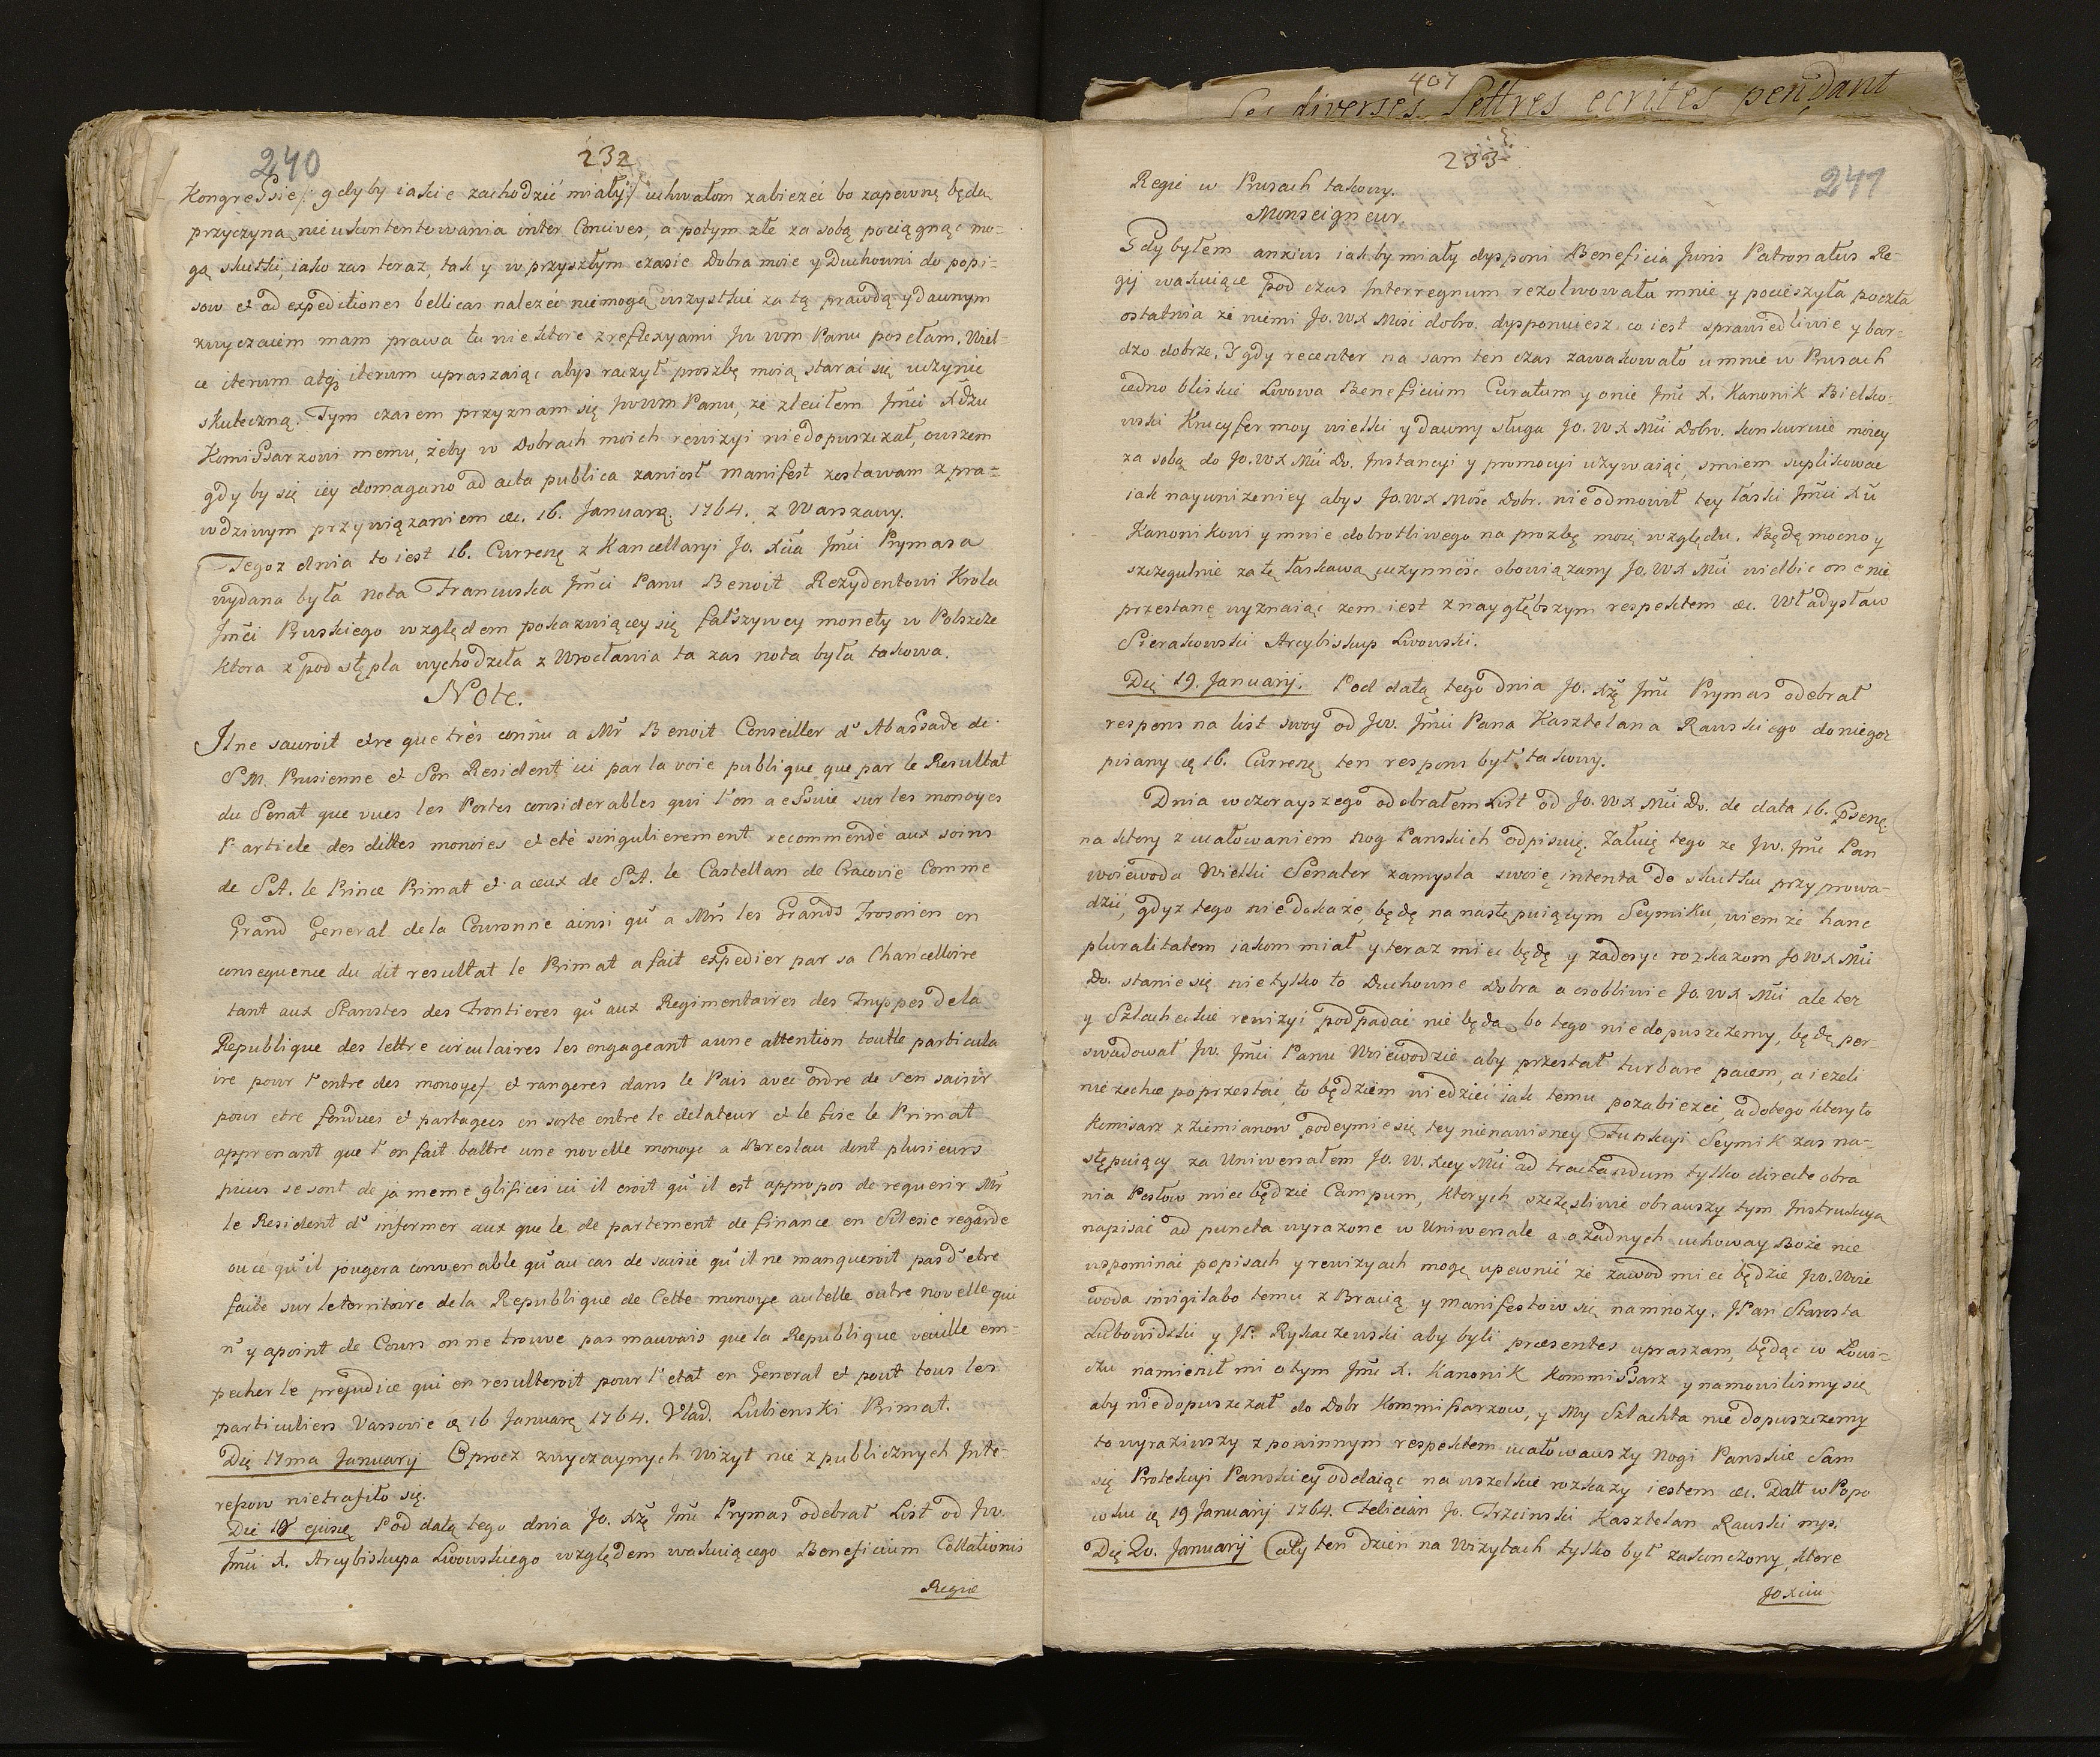 240
232
Kongressie /: gdyby iakie zachodzić miały :/ uchwałom zabieżeć bo zapewnę będą
przyczyną nieukontentowania inter Concives, a potym złe za sobą pociągnąc mo-
gą skutki, iako zas teraz, tak y w przyszłym czasie Dobra moie y Duchowni do popi-
sow et ad expeditiones bellicas nalezec niemogą wszystkie za tą prawdą y dawnym
zwyczaiem mam prawa tu niektore z reflexyami Jw wm Panu posełam. Wiel-
ce iterum atq iterum upraszaiąc abys raczył prozbę moią starać się uczynic
skuteczną. Tym czasem przyznam się Jwwm Panu, ze zleciłem Jmci Xdzu
Komissarzowi memu, żeby w Dobrach moich rewizyi niedopuszczał, owszem
gdyby się iey domagano ad acta publica zaniosł manifest zostawam z pra-
wdziwym przywiązaniem &c. 16. Januarij 1764. z Warszawy.
Tegoz dnia to iest 16. Currentis z Kancellaryi Jo. Xcia Jmci Prymasa
wydana była nota Francuska Jmci Panu Benoit Rezydentowi Krola
Jmci Pruskiego względem pokazuiącey się fałszywey monety w Polszcze
ktora z pod stępla wychodzeła z Wrocławia ta zas nota była takowa.
Note.
Il ne sauroit etre que trés connu a Mr Benoit Conseiller d'Abassade de
S M. Prusienne et Son Resident ici par la voie publique que par le Resultat
du Senat que vues les Pertes considerables qui l'on a essuie sur les monoyes
l'article des dittes monoies et eté singulierement recommendé aux soins
de S A. le Prince Primat et a ceux de S A. le Castellan de Cracovie Comme
Grand General de la Couronne ainsi qu'a Mrs les Grands Trosorien en
consequence du dit resultat le Primat a fait expedier par sa Chancelloire
tant aux Starostes des Frontieres qu'aux Regimentaires des Truppes de la
Republique des lettre circulaires les engageant a une attention toutte particula
ire pour l'entre des monoyes etrangeres dans le Pais avec ordre de s'en saisir
pour etre fondues et partagees en sorte entre le delateur et le fisc le Primat
apprenant que l'on fait battre une novelle monoye a Breslau dont plusieurs
pieces se sont de ja meme glisices ici il croit qu'il est appropos de requerir Mr
le Resident d'informer aux que le de partement de finance en Silesie regarde
ou ce qu'il jougera convenable qu'au cas de saisie qu'il ne manqueroit pas d'etre
faite sur le territoire de la Republique de Cette monoye autelle outre novelle qui
n'y a point de Cours on ne trouve pas mauvais que la Republique veuille em-
pecher le prejudice qui en resulteroit pour l'etat en General et pout tous les
particuliers Varsovie ce 16 Januarij 1764. Vlad. Lubienski Primat.
Die 17ma Januarij Oprocz zwyczaynych Wizyt nic z publicznych Inte-
resow nietrafiło się.
Die 18 ejusdem Pod datą tego dnia Jo. Xżę Jmc Prymas odebrał List od Jw.
Jmci X. Arcybiskupa Lwowskiego względem wakuiącego Beneficium Collationis
Regiæ
407
Les diverses Lettres ecrites pendant
233
241
Regię w Rusach takowy.
Monseigneur.
Gdy byłem anxius iak by miały dysponi Beneficia Juris Patronatus Re-
gij wakuiące pod czas Interregnum rezolwowała mnie y pocieszyła poczta
ostatnia ze niemi Jo. WX Mość dobro. dysponuiesz co iest sprawiedliwie y bar-
dzo dobrze. Y gdy recenter na sam ten czas zawakowało u mnie w Rusach
iedno bliskie Lwowa Beneficium Curatum y onie Jmc X. Kanonik Bielko-
wski Krucyfer moy wielki y dawny sługa Jo. WX Mci Dobro. konkuruie moiey
za sobą do Jo. WX Mci Do. Instancyi y promocyi uzywaiąc, smiem suplikowac
iak nayunizeniey abys Jo. WX Mość Dobr. nieodmowił tey łaski Jmci Xu
Kanonikowi y mnie dobrotliwego na prozbę moię względu. Będę mocno y
szczegulnie za tę łaskawą uczynność obowiązany Jo. WX Mci wielbic one nie
przestanę wyznaiąc zem iest z naygłębszym respektem &c. Władysław
Sierakowski Arcybiskup Lwowski.
Die 19. Januarij. Pod datą tego dnia Jo. Xżę Jmc Prymas odebrał
respons na list swoy od Jw. Jmci Pana Kasztelana Rawskiego doniegoz
pisany ce 16. Currentis ten respons był takowy.
Dnia wczorayszego odobrałem List od Jo. WX Mci Do. de data 16. Psentis
na ktory z ucałowaniem nog Panskich odpisuię. Załuię tego ze Jw. Jmc Pan
Woiewoda Wielki Senator zamysla swoię intenta do skutku przyprowa-
dzić, gdyz tego niedokaże, będę na następuiącym Seymiku, wiem że hanc
pluralitatem iakom miał y teraz miec będę y zadosyc rozkazom Jo WX Mci
Do. stanie się nietylko to Duchowne Dobra a osobliwie Jo. WX Mci ale tez
y Szlacheckie rewizyi podpadać nie będą, bo tego niedopuszczemy, będę per-
swadował Jw. Jmci Panu Woiewodzie aby przestał turbare pacem, a iezeli
niezechce poprzestać, to będziem wiedzieć iak temu pozabiezeć, a dotego ktory to
Komisarz z Ziemianow podeymie się tey nienawisney Funkcyi Seymik zas na-
stępuiący za Uniwersałem Jo. W. Xcey Mci ad tractandum tylko directe obra
nia Posłow miec będzie Campum, ktorych szczęsliwie obrawszy tym Instrukcya
napisać ad puncta wyrazone w Uniwersale a o żadnych uchoway Boże nie
wspominać popisach y rewizyach mogę upewnić że zawod miec będzie Jw. Woie
woda invigilabo temu z Bracią y manifestow się namnoży. JPan Starosta
Lubowidzki y JP. Rykaczewski aby byli præsentes upraszam, będąc w Łowi-
czu namienił mi otym Jmc X. Kanonik Kommissarz y namowilismy się
aby niedopuszczał do Dobr Kommissarzow, y My Szlachta nie dopuszczemy
to wyraziwszy z powinnym respektem ucałowawszy Nogi Panskie Sam
się Protekcyi Panskiey oddaiąc na wszelkie rozkazy iestem &c. Datt w Popo
wku ce 19 Januarij 1764. Felician Jo. Trzcinski Kasztelan Rawski mp.
Die 20. Januarij Cały ten dzien na Wizytach tylko był zakonczony, ktore
Jo Xciu